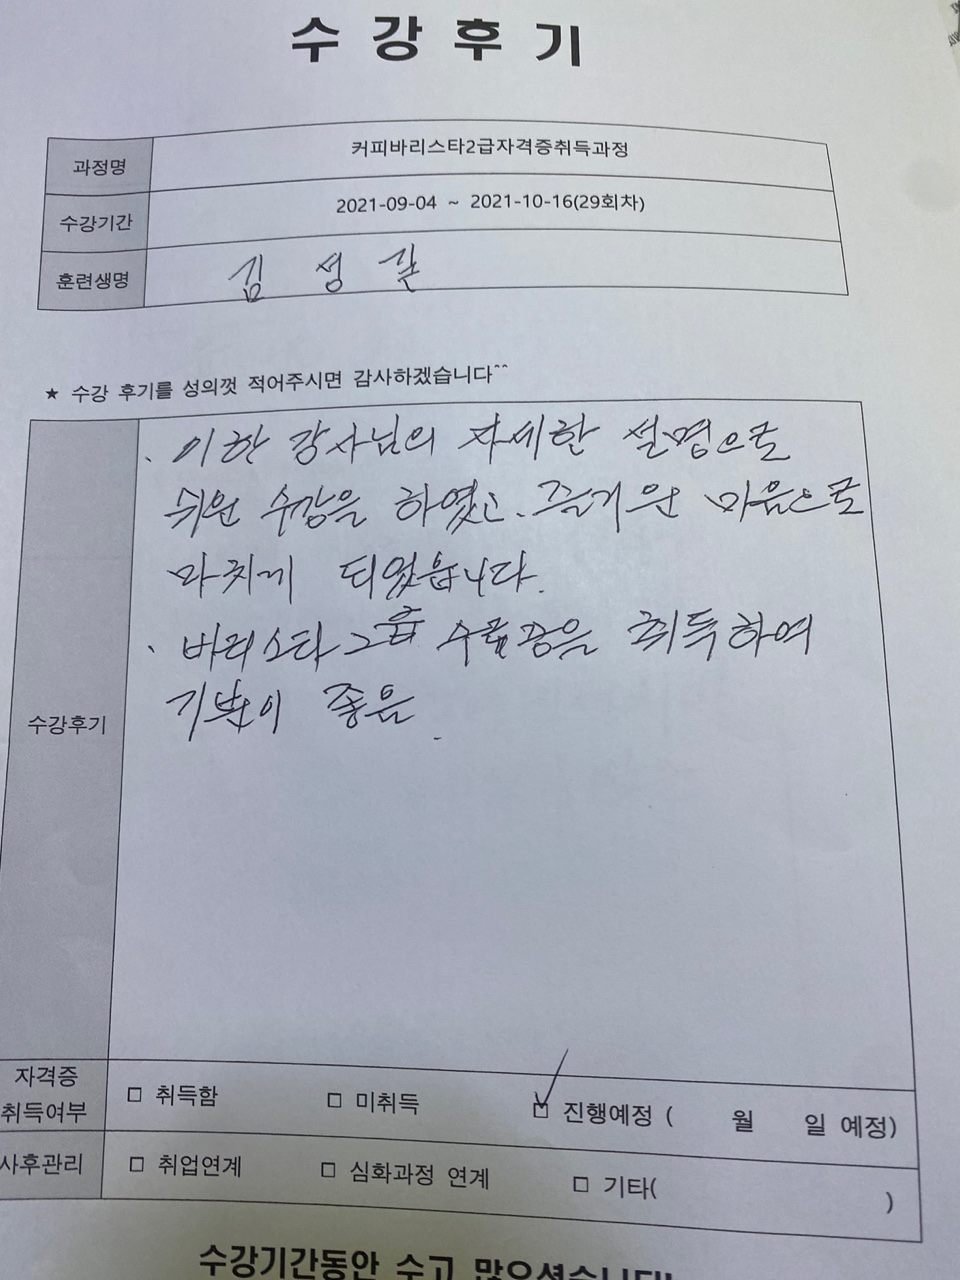 수 강 후 기
과정명 커피바리스타2급자격증취득과정
수강기간 2021-09-04 ~ 2021-10-16(29회차)
훈련생명 김 성 길
★ 수강 후기를 성의껏 적어주시면 감사하겠습니다^^
수강후기
. 이한 강사님의 자세한 설명으로
쉬운 수강을 하였고. 즐거운 마음으로
마치게 되었습니다.
. 바리스타 2급 취득하여
기분이 좋음.
자격증
취득여부 □ 취득함 □ 미취득 ☑ 진행예정 ( 월 일 예정)
사후관리 □ 취업연계 □ 심화과정 연계 □ 기타( )
수강기간동안 수고 많으셨습니다!